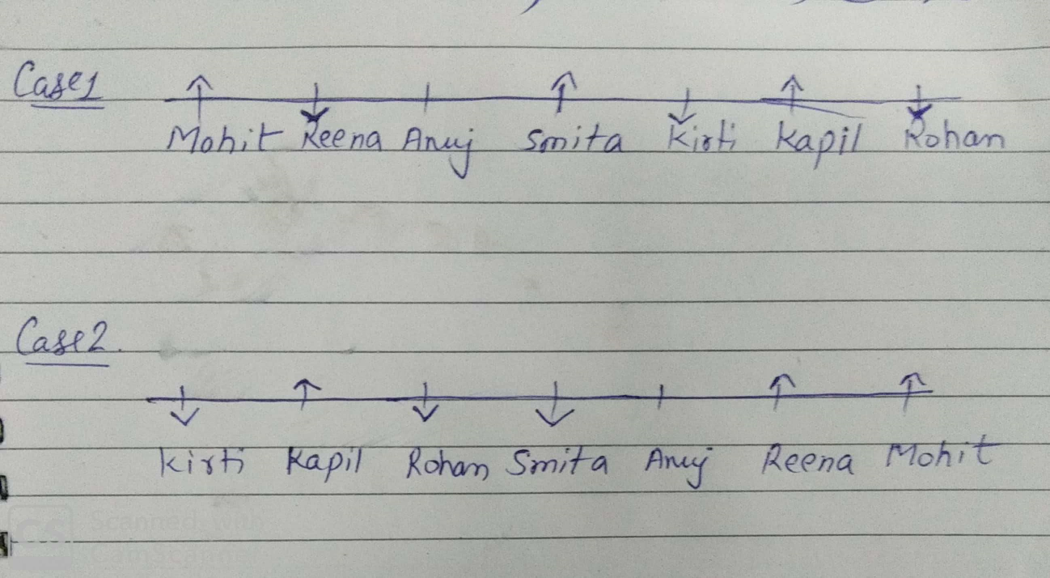 Case1
Mohit Reena Anuj Smita Kirti Kapil Rohan
Case2.
Kirti Kapil Rohan Smita Anuj Reena Mohit
CS Scanned with
CamScanner